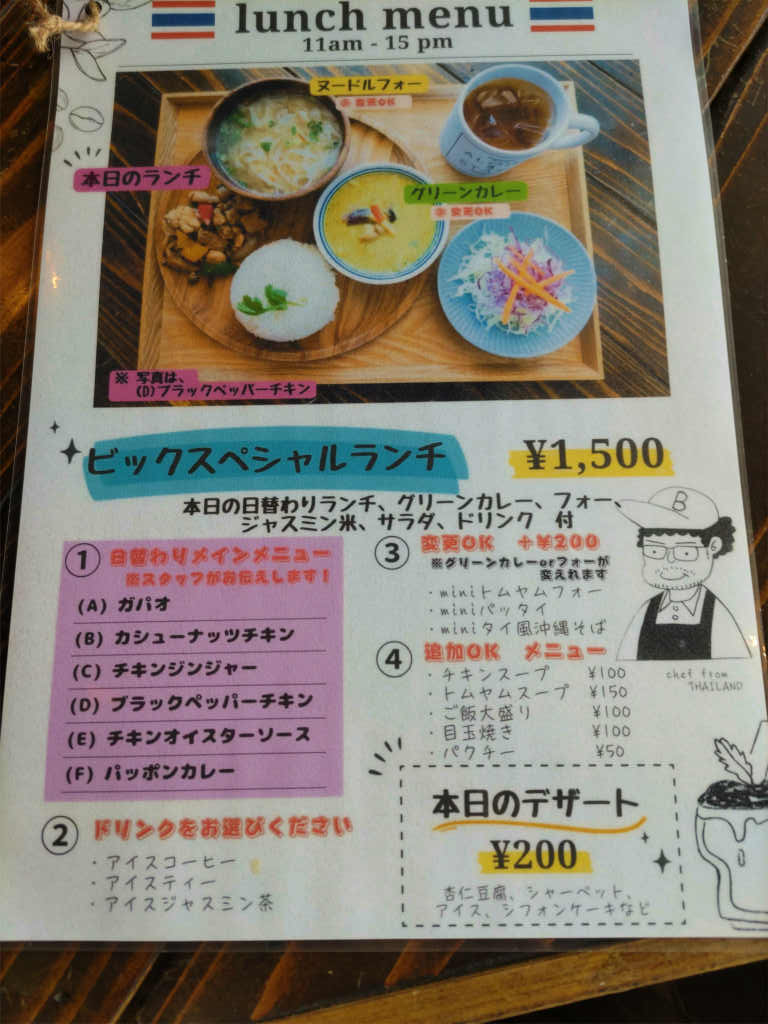 lunch menu
11am - 15 pm
ヌードルフォー
※ 変更OK
本日のランチ
グリーンカレー
※ 変更OK
※ 写真は、
(D)ブラックペッパーチキン
ビックスペシャルランチ ¥1,500
本日の日替わりランチ、グリーンカレー、フォー、
ジャスミン米、サラダ、ドリンク 付
① 日替わりメインメニュー
※スタッフがお伝えします！
(A) ガパオ
(B) カシューナッツチキン
(C) チキンジンジャー
(D) ブラックペッパーチキン
(E) チキンオイスターソース
(F) パッポンカレー
② ドリンクをお選びください
・アイスコーヒー
・アイスティー
・アイスジャスミン茶
③ 変更OK +¥200
※グリーンカレーorフォーが
変えれます
・miniトムヤムフォー
・miniパッタイ
・miniタイ風沖縄そば
④ 追加OK メニュー
・チキンスープ ¥100
・トムヤムスープ ¥150
・ご飯大盛り ¥100
・目玉焼き ¥100
・パクチー ¥50
B
chef from
THAILAND
本日のデザート
¥200
杏仁豆腐、シャーベット、
アイス、シフォンケーキなど